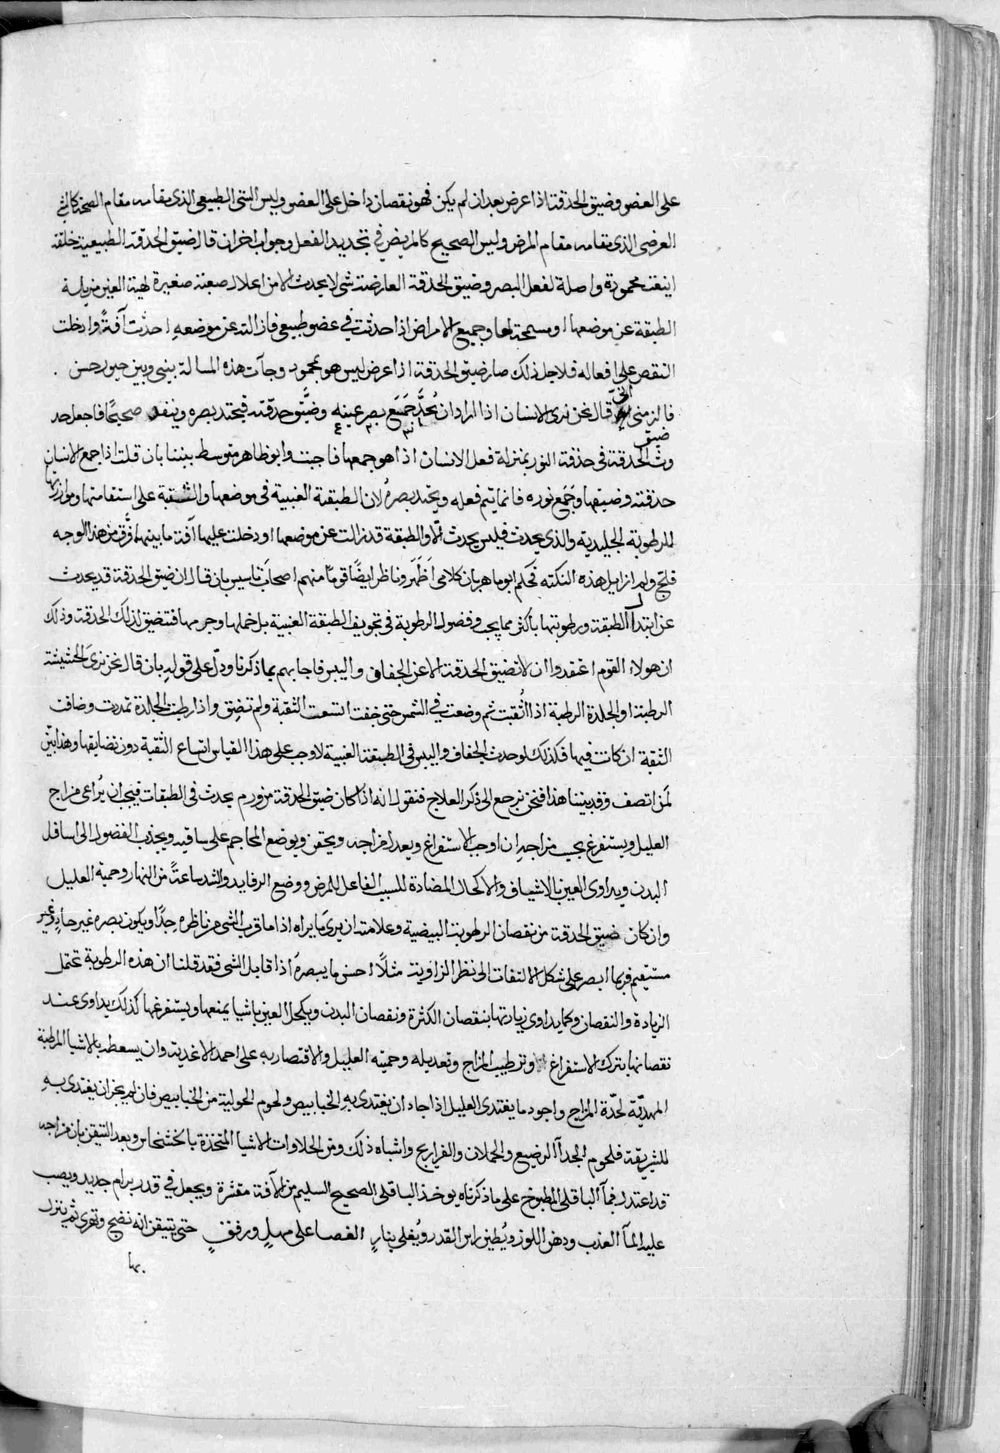 على العضو وضيق الحدقة اذا عرض بعد ان لم يكن فهو نقصان داخل على العضو وليس الشي الطبيعى الذى مقامه مقام الصحة كالشي
العرضى الذى مقامه مقام المرض وليس الصحيح كالمريض في تحديد الفعل وجواب اخر ان قال ضيق الحدقة الطبيعية خلقة
محمودة واصلة لفعل البصر وضيق الحدقة العارضة شى لا يحدث الا من اعلال صعبة صغيرة لهية العين مزيلة
الطبقة عن موضعها او مسمجة لها وجميع الامراض اذا حدثت في عضو طبيعى فازالته عن موضعه احدثت آفةً وادخلت
النقص على افعاله فلاجل ذلك صار ضيق الحدقة اذا عرض ليس هو بمحمود وجآت هذه المسالة بينى وبين جبور حسن .
فالزمنى انى قال نحن نرى الانسان اذا اراد ان يُحدّ جَمَع بصر عينه وضيّق حدقته فيحتد بصره وينفد صحيحًا فاجعل حد
وث ضيق الحدقة فى حدقة النور بمنزلة فعل الانسان اذا هو جمعها فاجبته وابو طاهر متوسط بيننا بان قلت اذا جمع الانسان
حدقته وضيقها وجَمَع نوره فانما يتم فعله ويحتد بصرهُ لان الطبقة العنبية فى موضعها والثقبة على استقامتها وموازيتها
للرطوبة الجليدية والذى يحدث فليس يحدث الا والطبقة قد زالت عن موضعها او دخلت عليها آفة ما بينهما فرق من هذا الوجه
فلج ولم ازايل هذه النكته فحكم ابو ماهر بان كلامى اَظْهَر وناظر ايضًا قومًا منهم اصحاب ثاسيس بان قال ان ضيق الحدقة قد يحدث
عن ابتدآ الطبقة ورطوبتها باكثر مما يجب وفضول الرطوبة فى تجويف الطبقة العنبية بل خملها وجرمها فتضيق لذلك الحدقة وذلك
ان هولاء القوم اعتقدوا ان لا تضيق الحدقة الا عن الجفاف واليبس فاجابهم بما ذكرنا ودلّ على قوله بان قال نحن نرى الخشبة
الرطبة او الجلدة الرطبة اذا اثقبت ثم وضعت في الشمس حتى خفت اتسعت الثقبة ولم تضِق واذا رطبت الجلدة تمددت وضاقت
الثقبة ان كانت فيها فكذلك لو حدث الجفاف واليبس فى الطبقة العنبية لاوجب على هذا القياس اتساع الثقبة دون تضايقها وهذا بيّن
لمن اتصف وقد بيننا هذا فنحن نرجع الى ذكر العلاج فنقول انه اذا كان ضيق الحدقة من ورم يحدث فى الطبقات فيجب ان يُراعى مزاج
العليل ويستفرغ بحسب مزاجه ان اوجب الاستفراغ ويعدل مزاجه ويحقن ويوضع المحاجم على ساقيه ويجذب الفضول الى اسافل
البدن ويداوى العين بالاشياف والاكحال المضادة للسبب الفاعل للمرض ووضع الرفايد والشد ساعتًا من النهار وحمية العليل
وان كان ضيق الحدقة من نقصان الرطوبة البيضية وعلامته ان يرى ما يراه اذا ما قرب الشى من ناظره جدًا ويكون بصره غير حادٍ وغير
مستقيم فربما ابصر على شكل الالتفات الى نظر الزاوية مثلًا احسن ما يبصرهُ اذا قابل الشى فقد قلنا ان هذه الرطوبة تحتمل
الزيادة والنقصان وكما يداوى زيادتها بنقصان الكثرة ونقصان البدن ويكحل العين باشيا يمنعها ويستفرغها كذلك يداوى عند
نقصانها بترك الاستفراغ وترطيب المزاج وتعديله وحمية العليل والاقتصار به على احمد الاغذية وان يسعط بالاشيا المرطبة
المهدّية لحدّة المزاج واجود ما يغتدى العليل اذا جاد ان يغتدى بهِ الخبابيص ولحوم الحولية من الخبابيص فان لم يجز ان يغتدى بهِ
للشريقة فلحوم الجدآ الرضيع والحملان والفراريج واشباه ذلك ومن الحلاوات الاشيا المتخذة بالخشخاش وبعد التيقن بان مزاجه
قد اعتدل فمآ الباقلى المطبوخ على ما ذكرناه يوخذ الباقلى الصحيح السليم من الآفة مقشرة ويجعل في قدر برام جديد ويصب
عليه المآ العذب ودهن اللوز ويُطين راس القدر ويُغلى بنارٍ الغضا على مهلٍ ورفقٍ حتى يتيقن انه نضج وتهرى ثم ينزل
بها